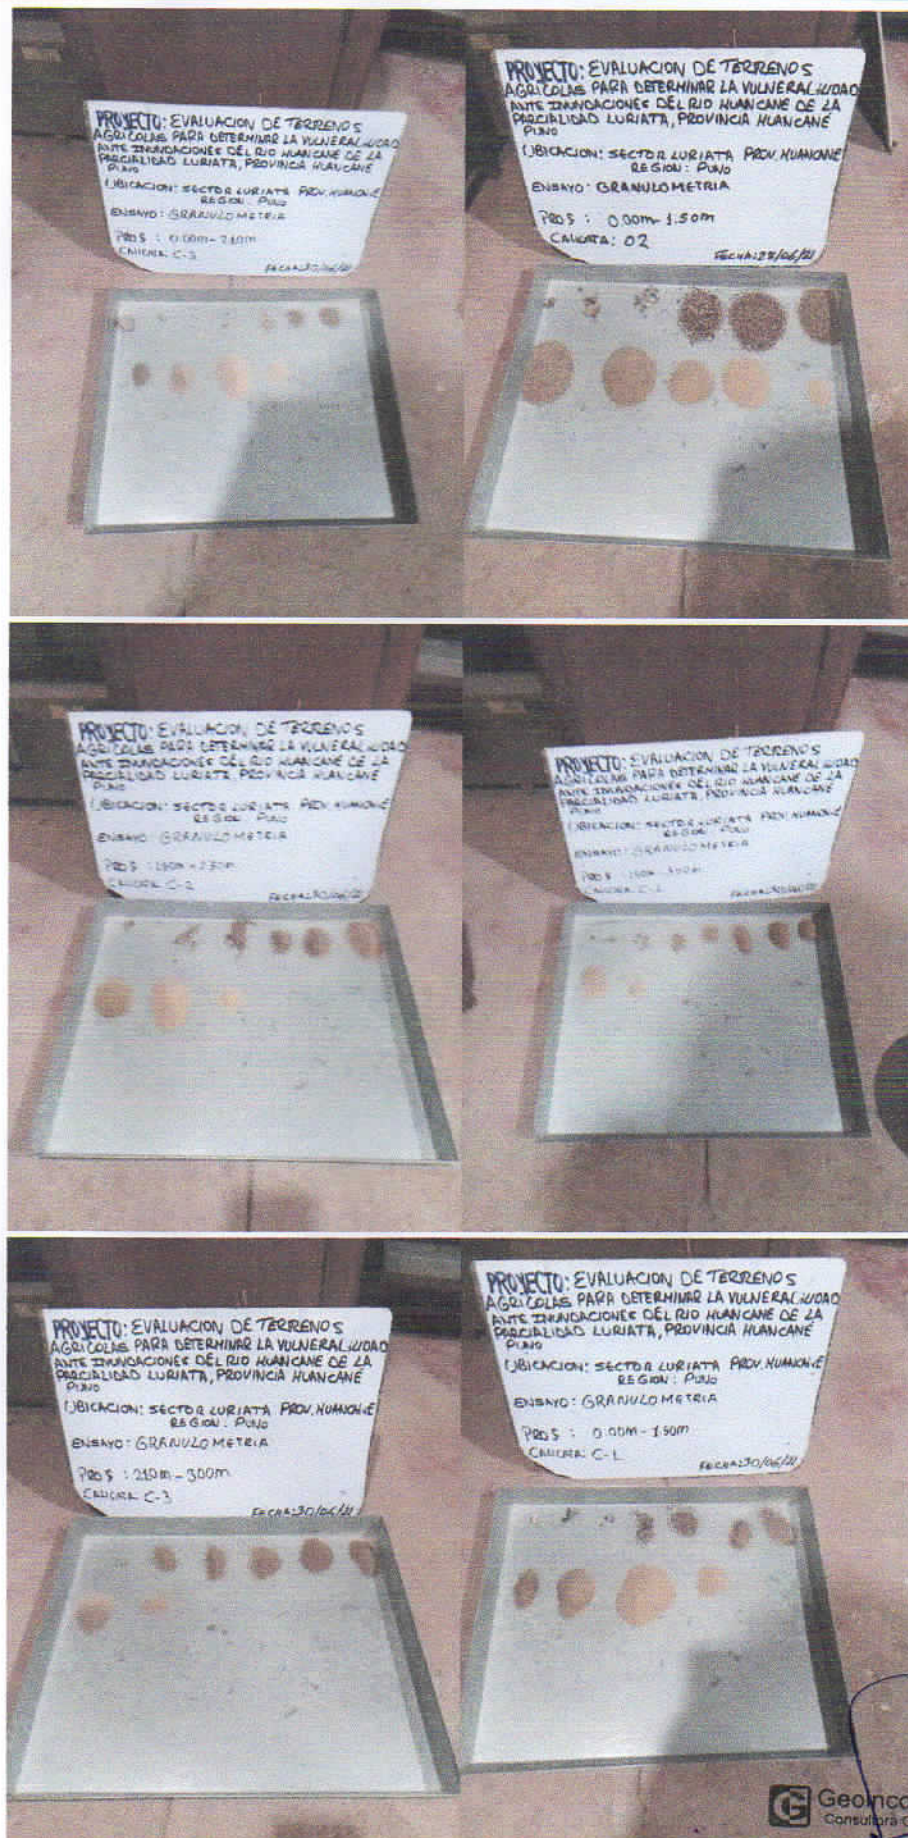 PROYECTO: EVALUACION DE TERRENOS
AGRICOLAS PARA DETERMINAR LA VULNERALIIDAD
ANTE INUNDACIONES DEL RIO HUANCANE DE LA
PARCIALIDAD LURIATA, PROVINCIA HUANCANE
PUNO
UBICACION: SECTOR LURIATA PROV. HUANCANE
REGION: PUNO
ENSAYO: GRANULOMETRIA
PROS : 0.00m-2.10m
CALICATA C-3
PROYECTO: EVALUACION DE TERRENOS
AGRICOLAS PARA DETERMINAR LA VULNERALIIDAD
ANTE INUNDACIONES DEL RIO HUANCANE DE LA
PARCIALIDAD LURIATA, PROVINCIA HUANCANE
PUNO
UBICACION: SECTOR LURIATA PROV. HUANCANE
REGION: PUNO
ENSAYO: GRANULOMETRIA
PROS : 0.00m-1.50m
CALICATA: 02
FECHA:28/06/21
PROYECTO: EVALUACION DE TERRENOS
AGRICOLAS PARA DETERMINAR LA VULNERALIIDAD
ANTE INUNDACIONES DEL RIO HUANCANE DE LA
PARCIALIDAD LURIATA PROVINCIA HUANCANE
PUNO
UBICACION: SECTOR LURIATA PROV. HUANCANE
REGION: PUNO
ENSAYO: GRANULOMETRIA
CALICATA C-2
PROYECTO: EVALUACION DE TERRENOS
AGRICOLAS PARA DETERMINAR LA VULNERALIIDAD
ANTE INUNDACIONES DEL RIO HUANCANE DE LA
PARCIALIDAD LURIATA, PROVINCIA HUANCANE
PUNO
UBICACION: SECTOR LURIATA PROV. HUANCANE
REGION: PUNO
ENSAYO: GRANULOMETRIA
PROYECTO: EVALUACION DE TERRENOS
AGRICOLAS PARA DETERMINAR LA VULNERALIIDAD
ANTE INUNDACIONES DEL RIO HUANCANE DE LA
PARCIALIDAD LURIATA, PROVINCIA HUANCANE
PUNO
UBICACION: SECTOR LURIATA PROV. HUANCANE
REGION: PUNO
ENSAYO: GRANULOMETRIA
PROS : 2.10m-3.00m
CALICATA C-3
FECHA:30/06/21
PROYECTO: EVALUACION DE TERRENOS
AGRICOLAS PARA DETERMINAR LA VULNERALIIDAD
ANTE INUNDACIONES DEL RIO HUANCANE DE LA
PARCIALIDAD LURIATA, PROVINCIA HUANCANE
PUNO
UBICACION: SECTOR LURIATA PROV. HUANCANE
REGION: PUNO
ENSAYO: GRANULOMETRIA
PROS : 0.00m-1.50m
CALICATA C-1
FECHA:30/06/21
Geoinco
Consultora